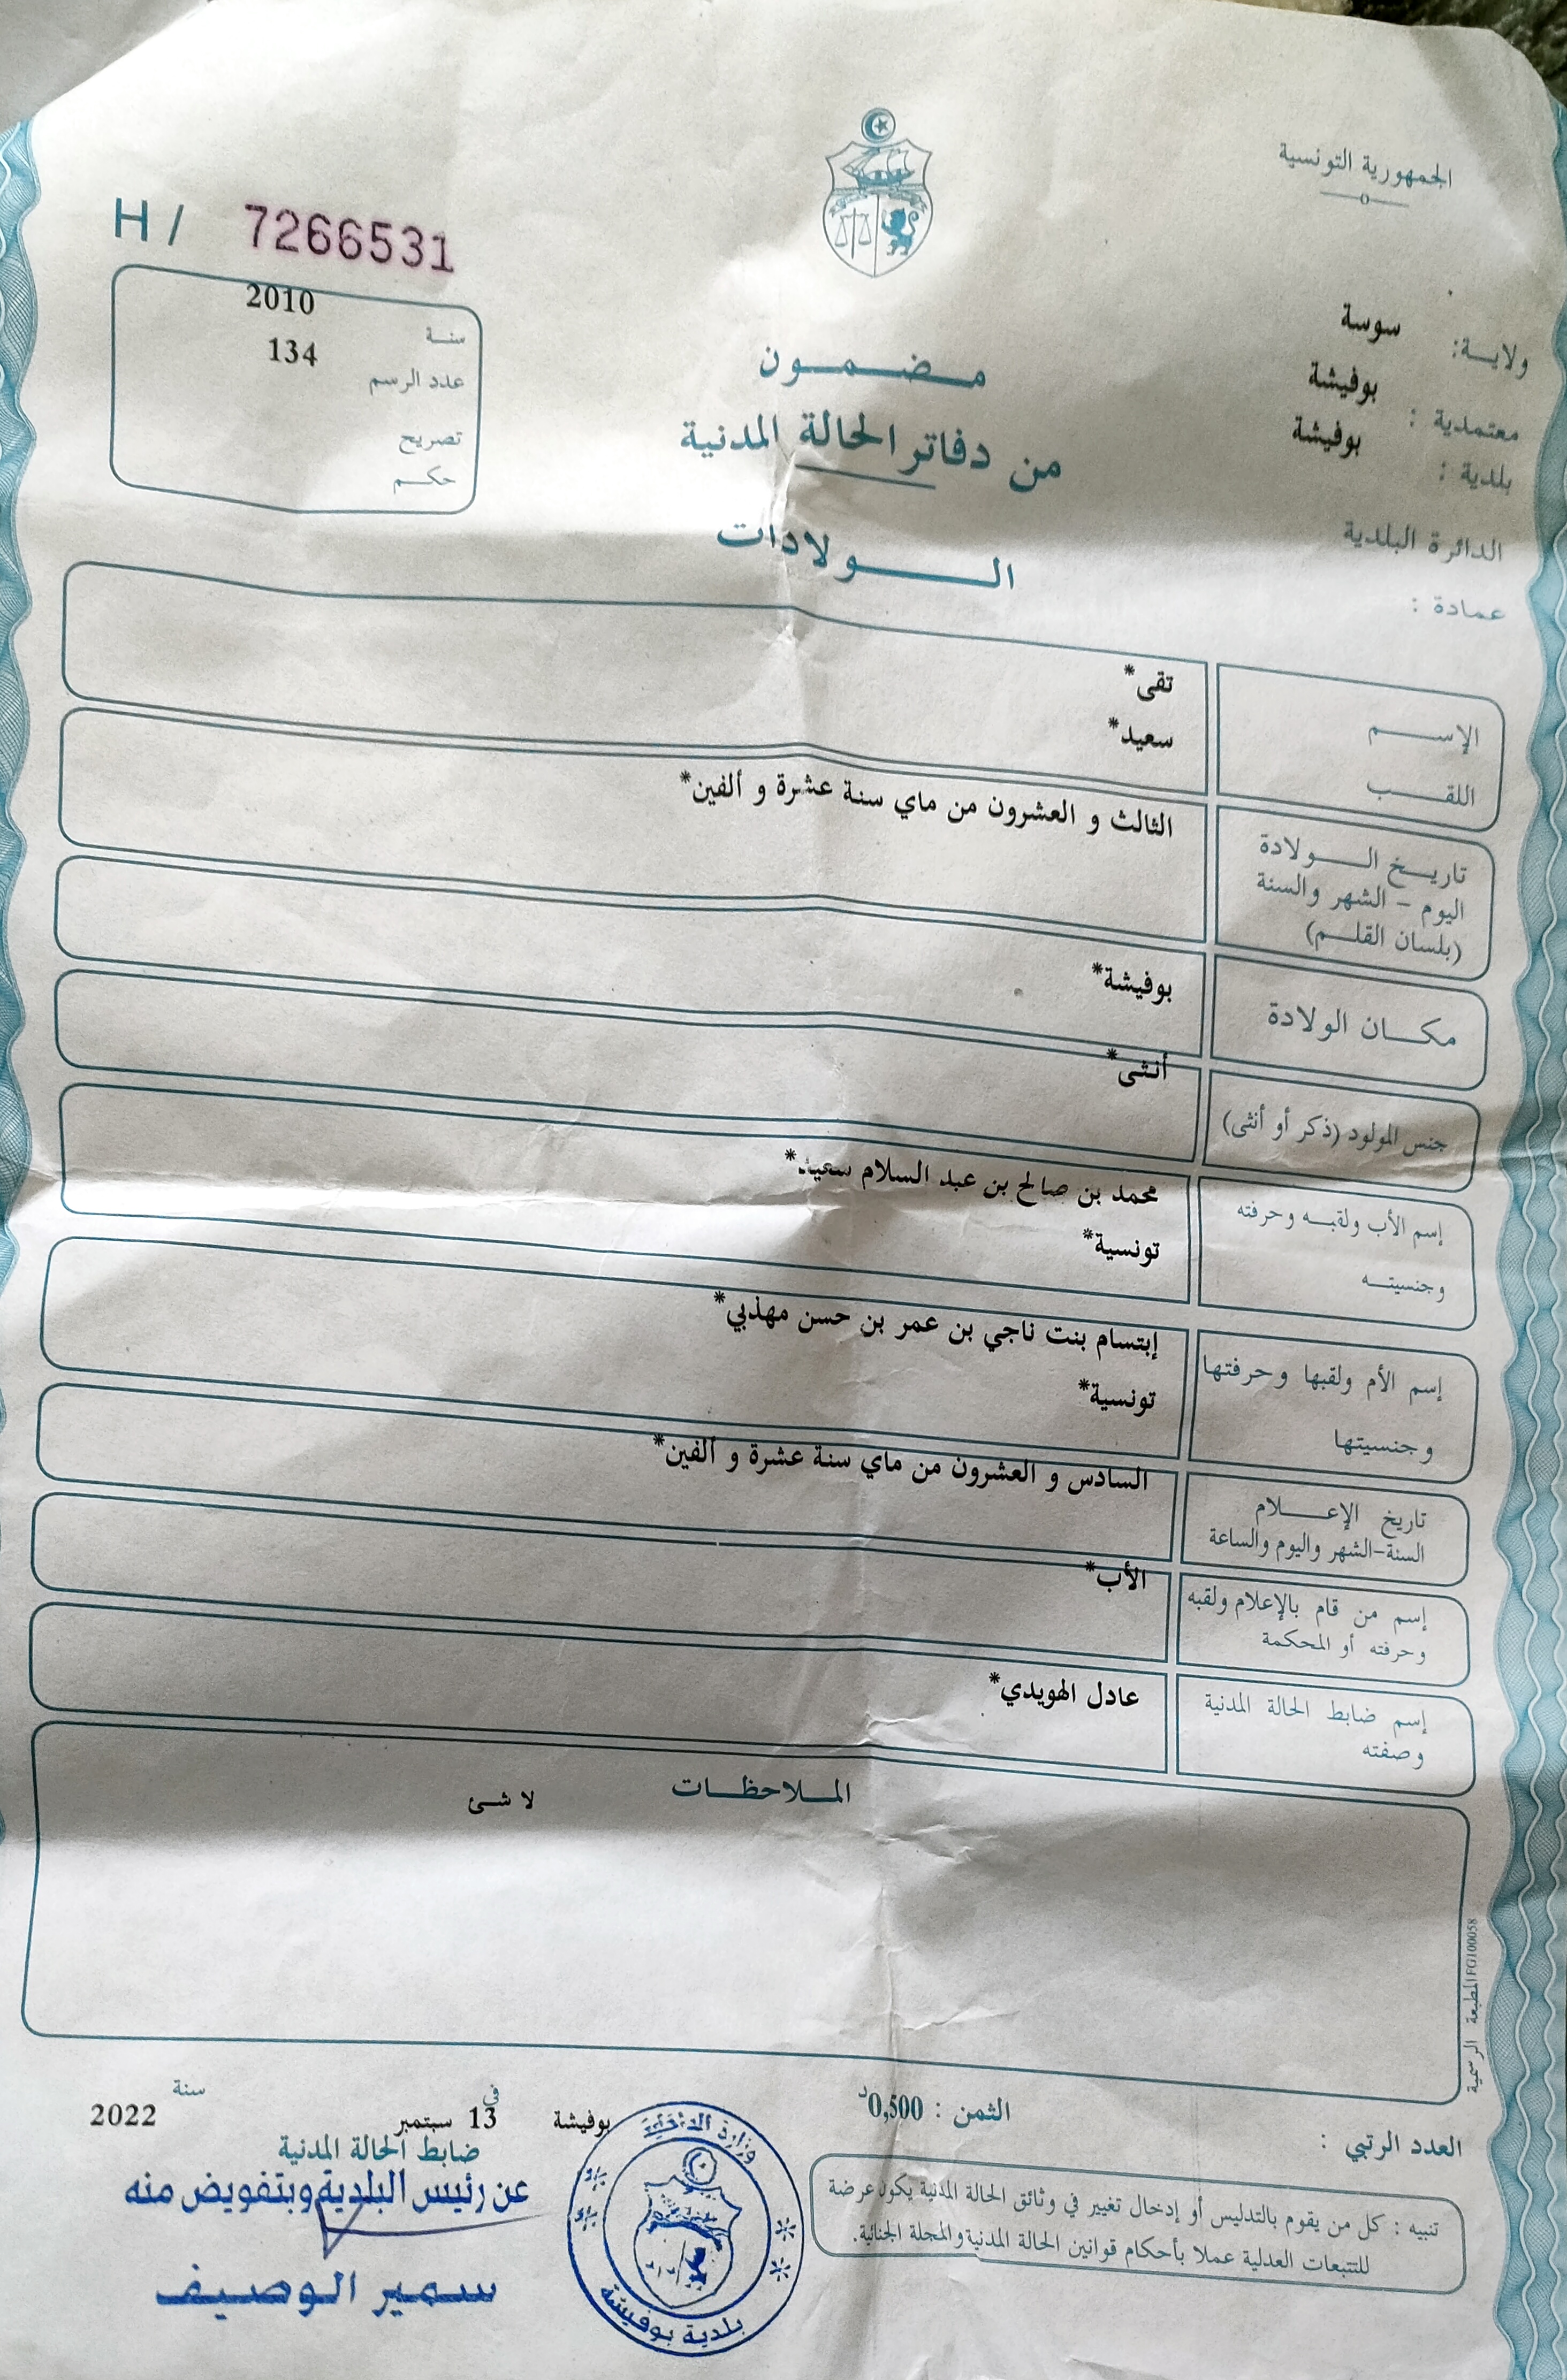 الجمهورية التونسية
H / 7266531
سنة 2010
عدد الرسم 134
تصريح
حكم
مضمون
من دفاتر الحالة المدنية
الولادات
ولاية: سوسة
معتمدية : بوفيشة
بلدية : بوفيشة
الدائرة البلدية
عمادة :
الإسم تقى*
اللقب سعيد*
تاريخ الولادة
اليوم - الشهر والسنة
(بلسان القلم)
الثالث و العشرون من ماي سنة عشرة و ألفين*
مكان الولادة بوفيشة*
جنس المولود (ذكر أو أنثى) أنثى*
إسم الأب ولقبه وحرفته محمد بن صالح بن عبد السلام سعيد*
وجنسيته تونسية*
إسم الأم ولقبها وحرفتها إبتسام بنت ناجي بن عمر بن حسن مهذبي*
وجنسيتها تونسية*
تاريخ الإعلام
السنة-الشهر واليوم والساعة
السادس و العشرون من ماي سنة عشرة و ألفين*
إسم من قام بالإعلام ولقبه
وحرفته أو المحكمة
الأب*
إسم ضابط الحالة المدنية
وصفته
عادل الهويدي*
الملاحظات
لا شئ
المطبعة الرسمية FG100058
العدد الرتبي :
الثمن : 0,500د
تنبيه : كل من يقوم بالتدليس أو إدخال تغيير في وثائق الحالة المدنية يكون عرضة
للتتبعات العدلية عملا بأحكام قوانين الحالة المدنية والمجلة الجنائية.
بوفيشة في 13 سبتمبر سنة 2022
ضابط الحالة المدنية
عن رئيس البلدية وبتفويض منه
سمير الوصيف
وزارة الداخلية
بلدية بوفيشة